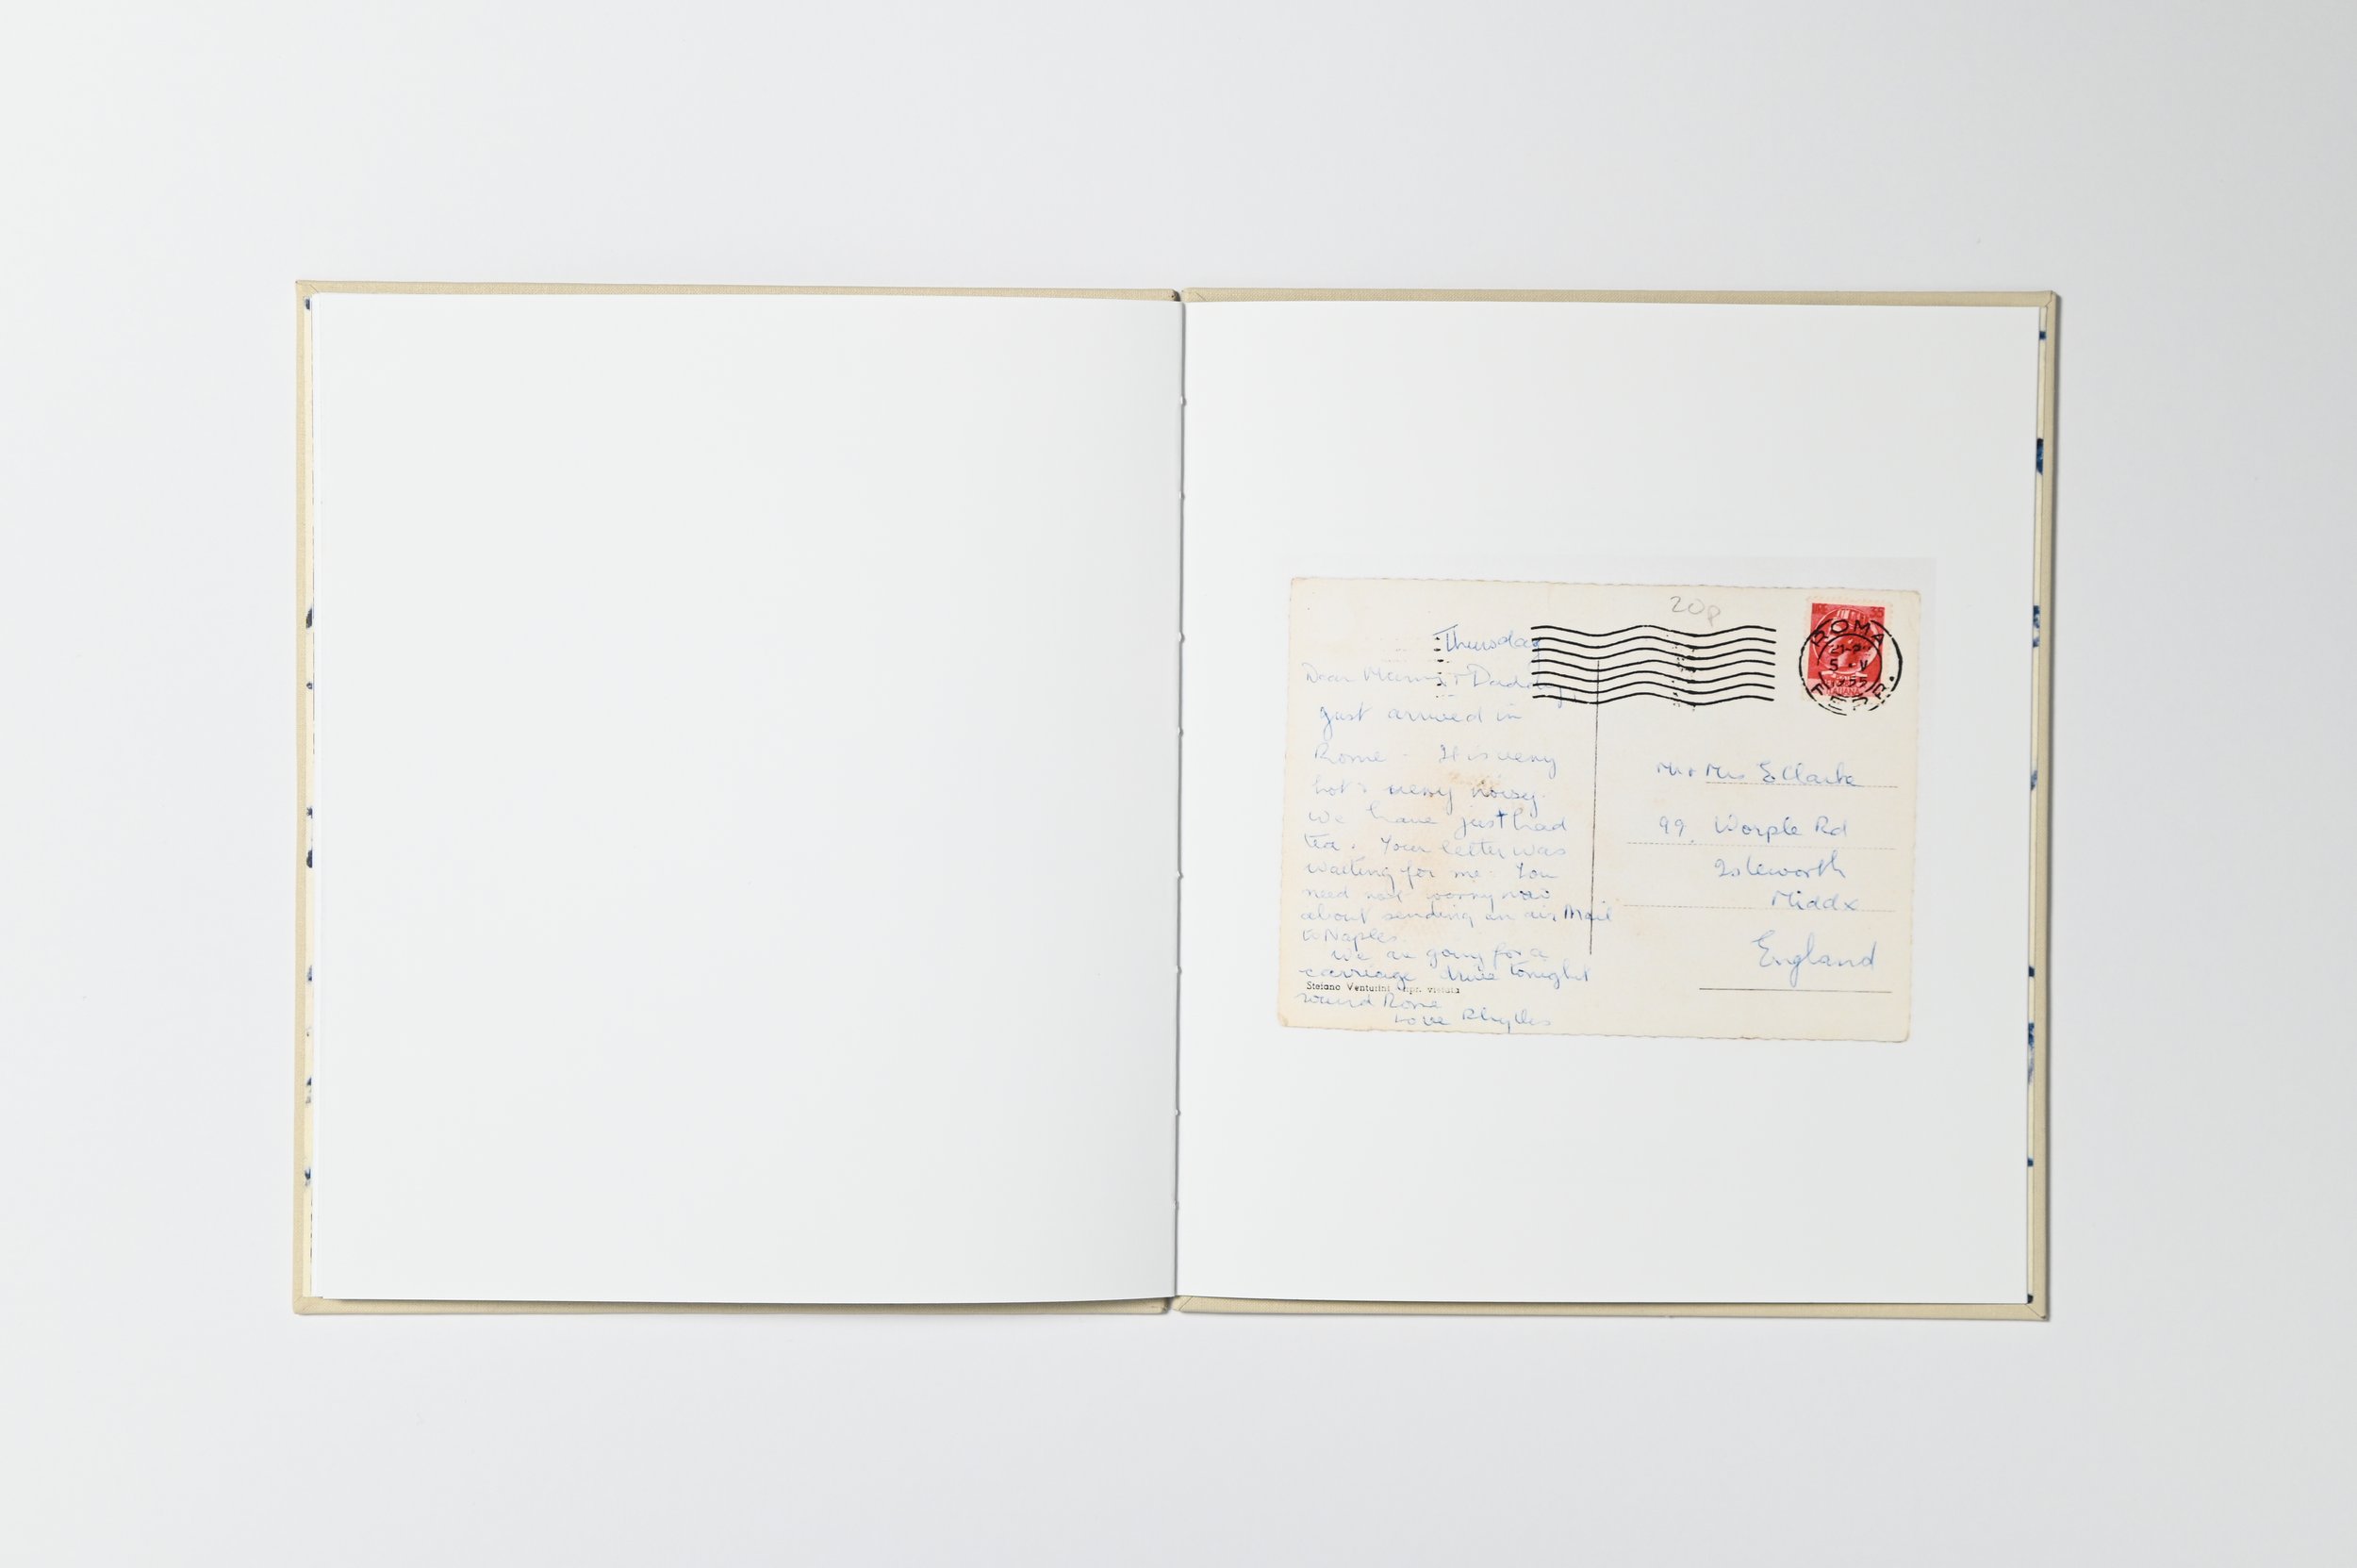 20p
Thursday
Dear Mummy + Daddy,
Just arrived in
Rome - It is very
hot & very noisy.
We have just had
tea. Your letter was
waiting for me. You
need not worry now
about sending an air Mail
to Naples.
We are going for a
carriage drive tonight
round Rome
Love Phyllis
Stefano Venturini
ROMA
5 - V
1955
FERR.
Mr + Mrs E Clarke
99. Worple Rd
Isleworth
Middx
England